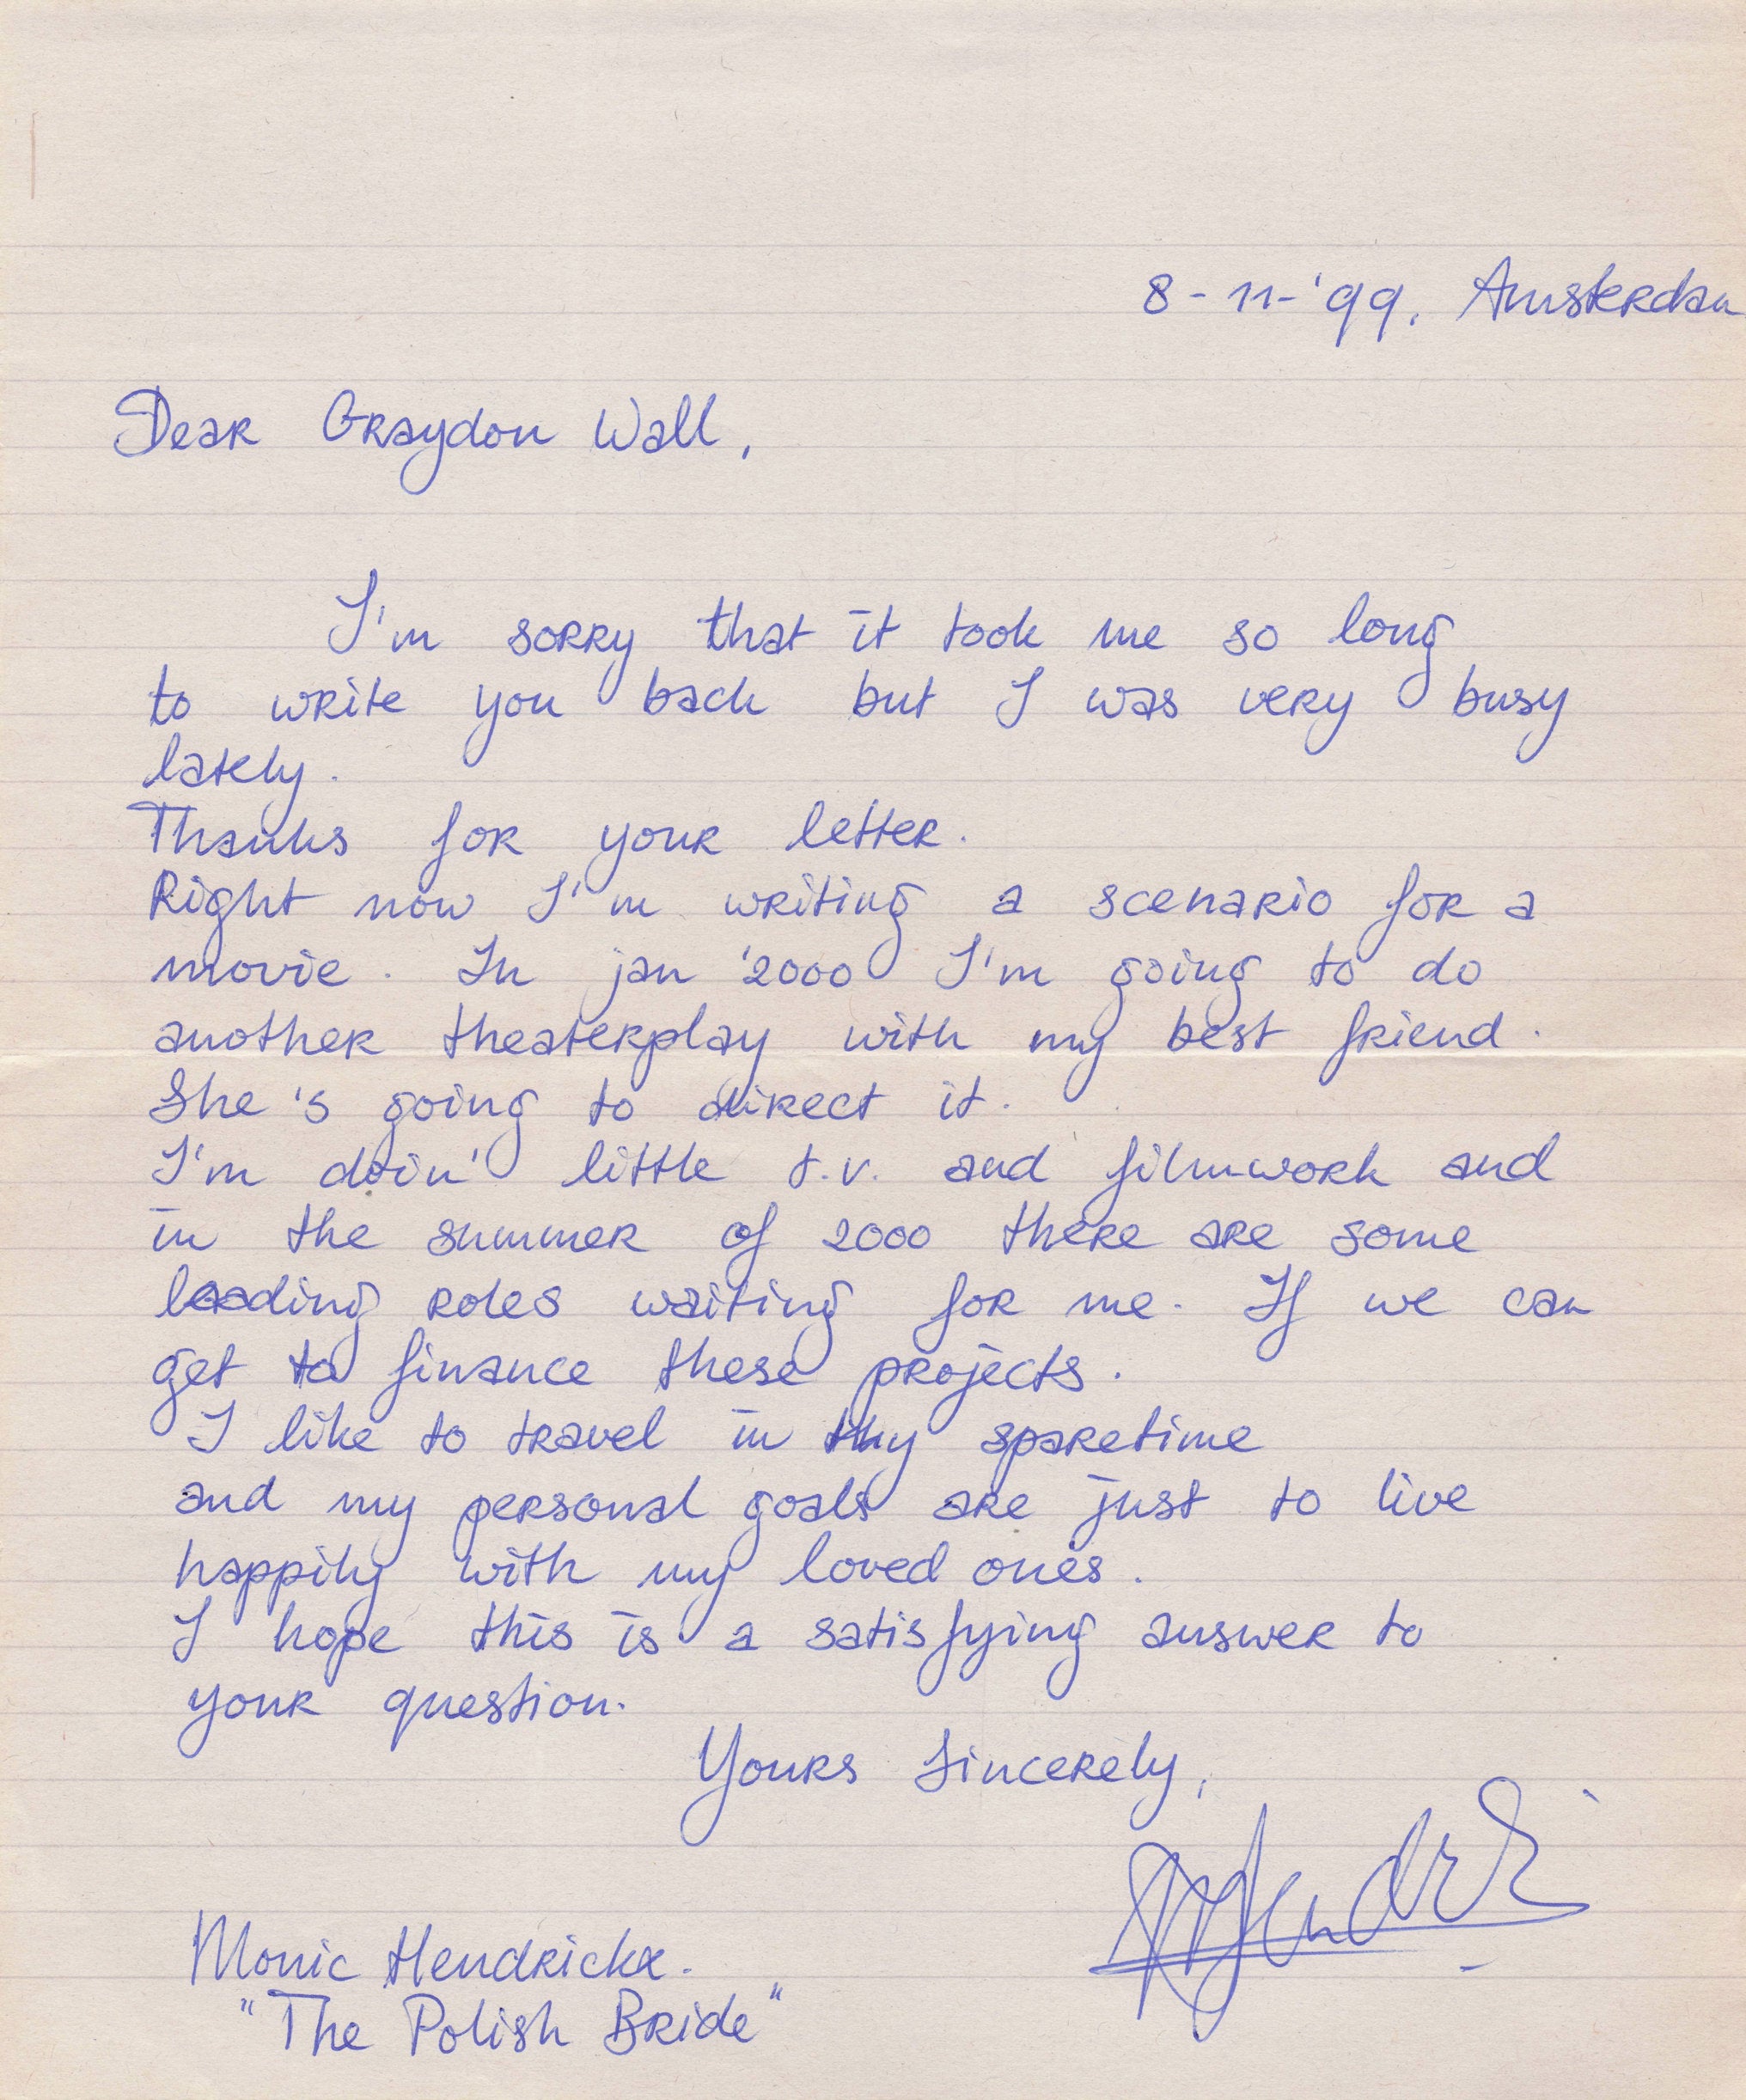 8-11-'99, Amsterdam
Dear Graydon Wall,
I'm sorry that it took me so long
to write you back but I was very busy
lately.
Thanks for your letter.
Right now I'm writing a scenario for a
movie. In jan '2000 I'm going to do
another theaterplay with my best friend.
She's going to direct it.
I'm doin' little t.v. and filmwork and
in the summer of 2000 there are some
leading roles waiting for me. If we can
get to finance these projects.
I like to travel in my sparetime
and my personal goals are just to live
happily with my loved ones.
I hope this is a satisfying answer to
your question.
Yours Sincerely,
Monic Hendrickx.
"The Polish Bride"